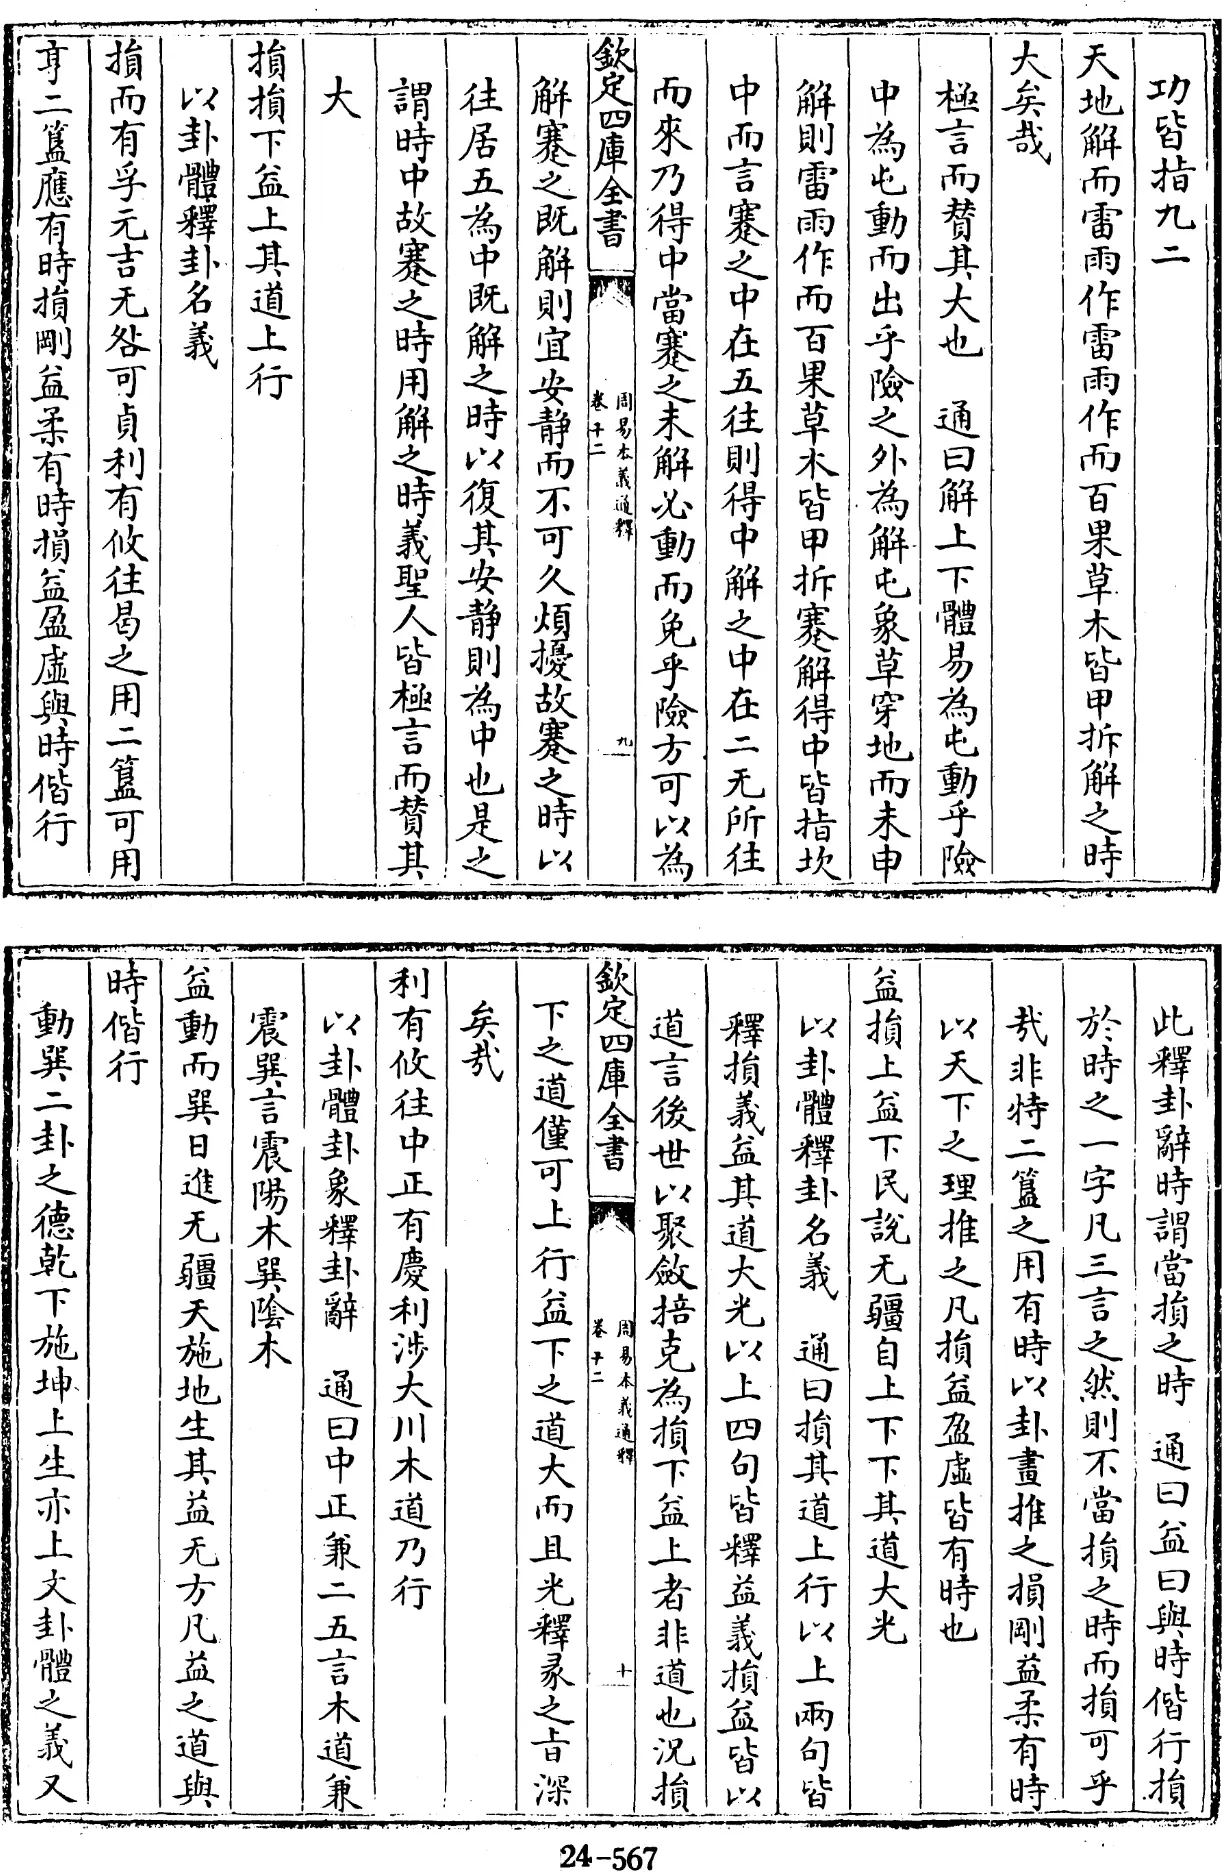 功皆指九二
天地解而雷雨作雷雨作而百果草木皆甲拆解之時
大矣哉
極言而賛其大也　通曰解上下體易為屯動乎險
中為屯動而出乎險之外為解屯象草穿地而未申
解則雷雨作而百果草木皆甲拆蹇解得中皆指坎
中而言蹇之中在五往則得中解之中在二无所往
而來乃得中當蹇之未解必動而免乎險方可以為
欽定四庫全書
周易本義通釋
卷十二
九
解蹇之既解則宜安靜而不可久煩擾故蹇之時以
往居五為中既解之時以復其安靜則為中也是之
謂時中故蹇之時用解之時義聖人皆極言而賛其
大
損損下益上其道上行
以卦體釋卦名義
損而有孚元吉无咎可貞利有攸往曷之用二簋可用
享二簋應有時損剛益柔有時損益盈虛與時偕行
此釋卦辭時謂當損之時　通曰益曰與時偕行損
於時之一字凡三言之然則不當損之時而損可乎
哉非特二簋之用有時以卦畫推之損剛益柔有時
以天下之理推之凡損益盈虛皆有時也
益損上益下民說无疆自上下下其道大光
以卦體釋卦名義　通曰損其道上行以上兩句皆
釋損義益其道大光以上四句皆釋益義損益皆以
道言後世以聚斂掊克為損下益上者非道也況損
欽定四庫全書
周易本義通釋
卷十二
十
下之道僅可上行益下之道大而且光釋彖之旨深
矣哉
利有攸往中正有慶利涉大川木道乃行
以卦體卦象釋卦辭　通曰中正兼二五言木道兼
震巽言震陽木巽陰木
益動而巽日進无疆天施地生其益无方凡益之道與
時偕行
動巽二卦之德乾下施坤上生亦上文卦體之義又
24-567